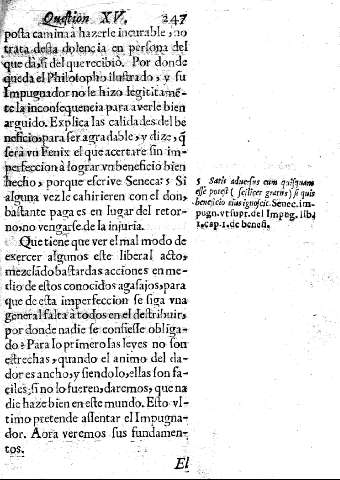 Question XV. 247
posta camina à hazerle incurable, no
trata desta dolencia en persona del
que dà, si del que recibiò. Por donde
queda el Philosopho ilustrado, y su
Impugnador no le hizo legititamẽ-
te la inconsequencia para averle bien
arguido. Explica las calidades del be
neficio, para ser agradable, y dize, q̃
serà vn Fenix el que acertare sin im-
perfeccion à lograr vn beneficio bien
hecho, porque escrive Seneca: 5 Si
alguna vez le çahirieren con el don,
bastante paga es en lugar del retor-
no, no vengarse de la injuria.
Que tiene que ver el mal modo de
exercer algunos este liberal acto,
mezclãdo bastardas acciones en me-
dio de estos conocidos agasajos, para
que de esta imperfeccion se siga vna
general falta à todos en el destribuir,
por donde nadie se confiesse obliga-
do? Para lo primero las leves no son
estrechas, quando el animo del da-
dor es ancho, y siendolo, ellas son fa-
ciles; si no lo fueren, daremos, que na
die haze bien en este mundo. Esto vl-
timo pretende assentar el Impugna-
dor. Aora veremos sus fundamen-
tos.
El
5 Satis adversus eum quisquam
esse potest (scilicet gratus) si quis
beneficio eius ignoscit. Senec. im-
pugn. vt supr. del Impug. lib.
1. cap. 1. de benefi.